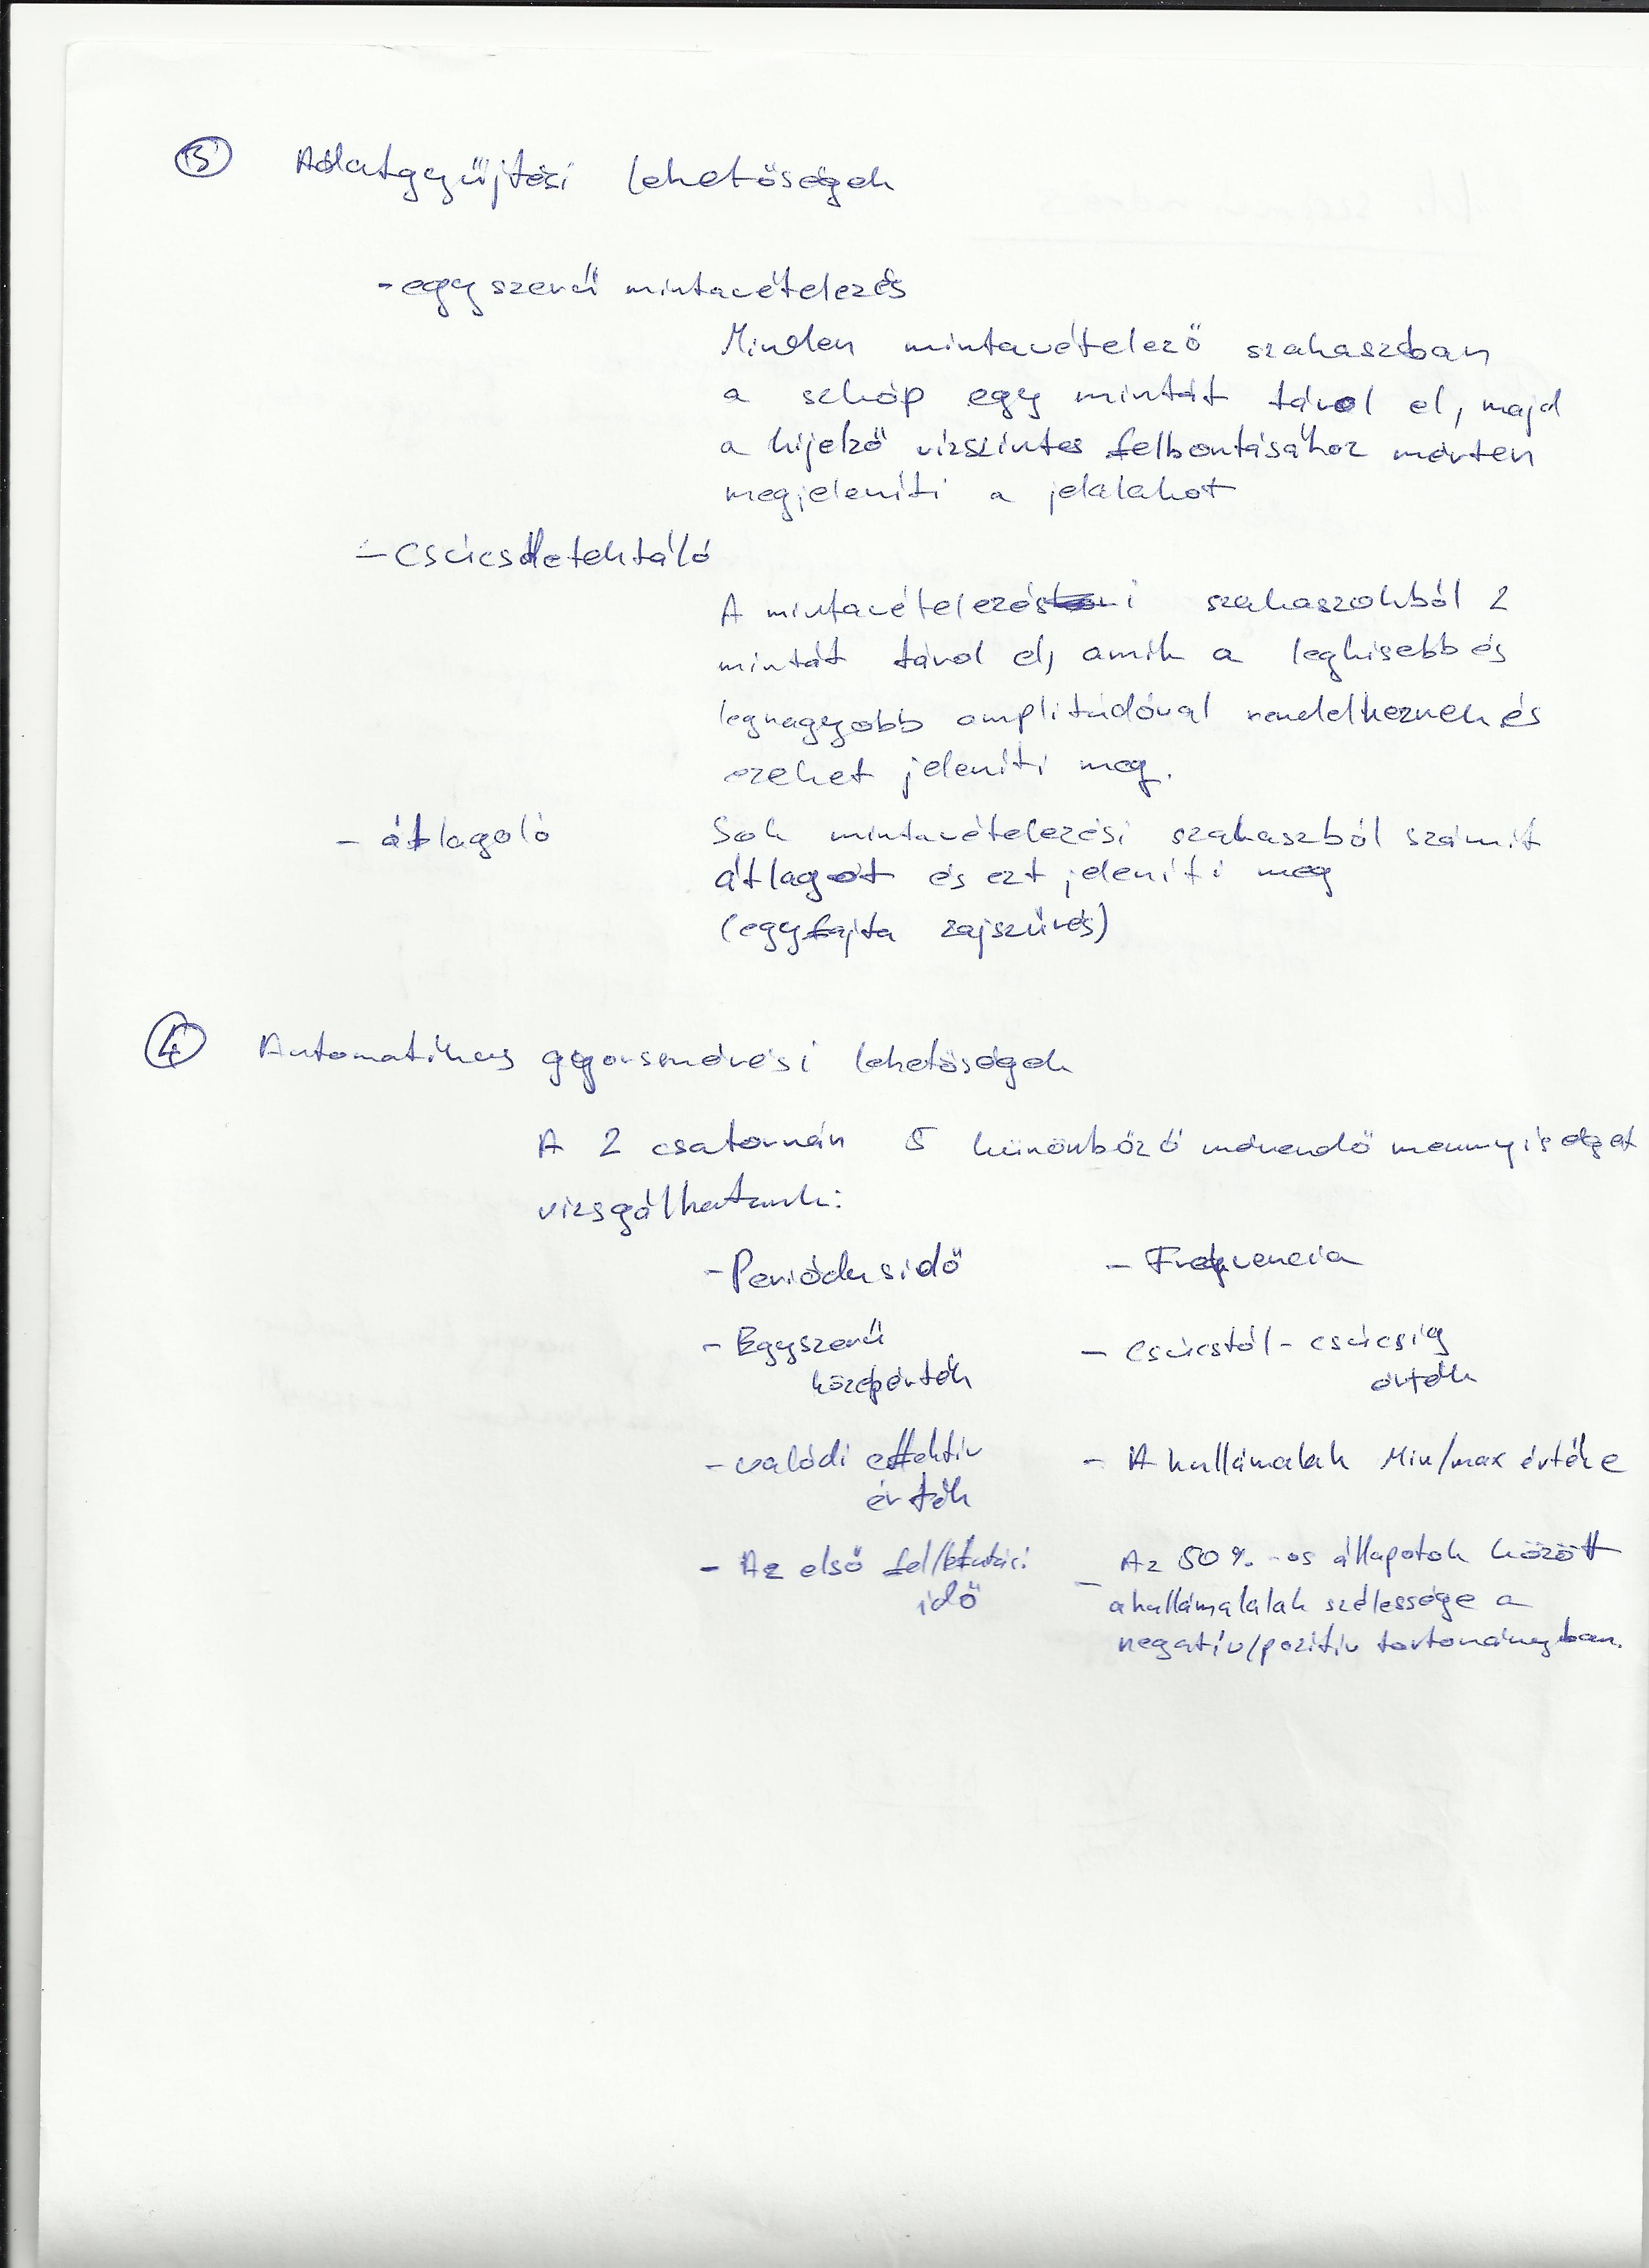 3 Adatgyűjtési lehetőségek
- egyszerű mintavételezés
Minden mintavételező szakaszban
a szkóp egy mintát tárol el, majd
a kijelző vízszintes felbontásához mérten
megjeleníti a jelalakot
- Csúcsdetektáló
A mintavételezési szakaszokból 2
mintát tárol el, amik a legkisebb és
legnagyobb amplitúdóval rendelkeznek és
ezeket jeleníti meg.
- átlagoló
Sok mintavételezési szakaszból számít
átlagot és ezt jeleníti meg
(egyfajta zajszűrés)
4 Automatikus gyorsmérési lehetőségek
A 2 csatornán 5 különböző mérendő mennyiséget
vizsgálhatunk:
- Periódusidő - Frequencia
- Egyszerű
középérték
- Csúcstól-csúcsig
érték
- valódi effektív
érték
- A hullámalak Min/max értéke
- Az első fel/lefutási
idő
- Az 50%-os állapotok között
a hullámalalak szélessége a
negatív/pozitív tartományban.